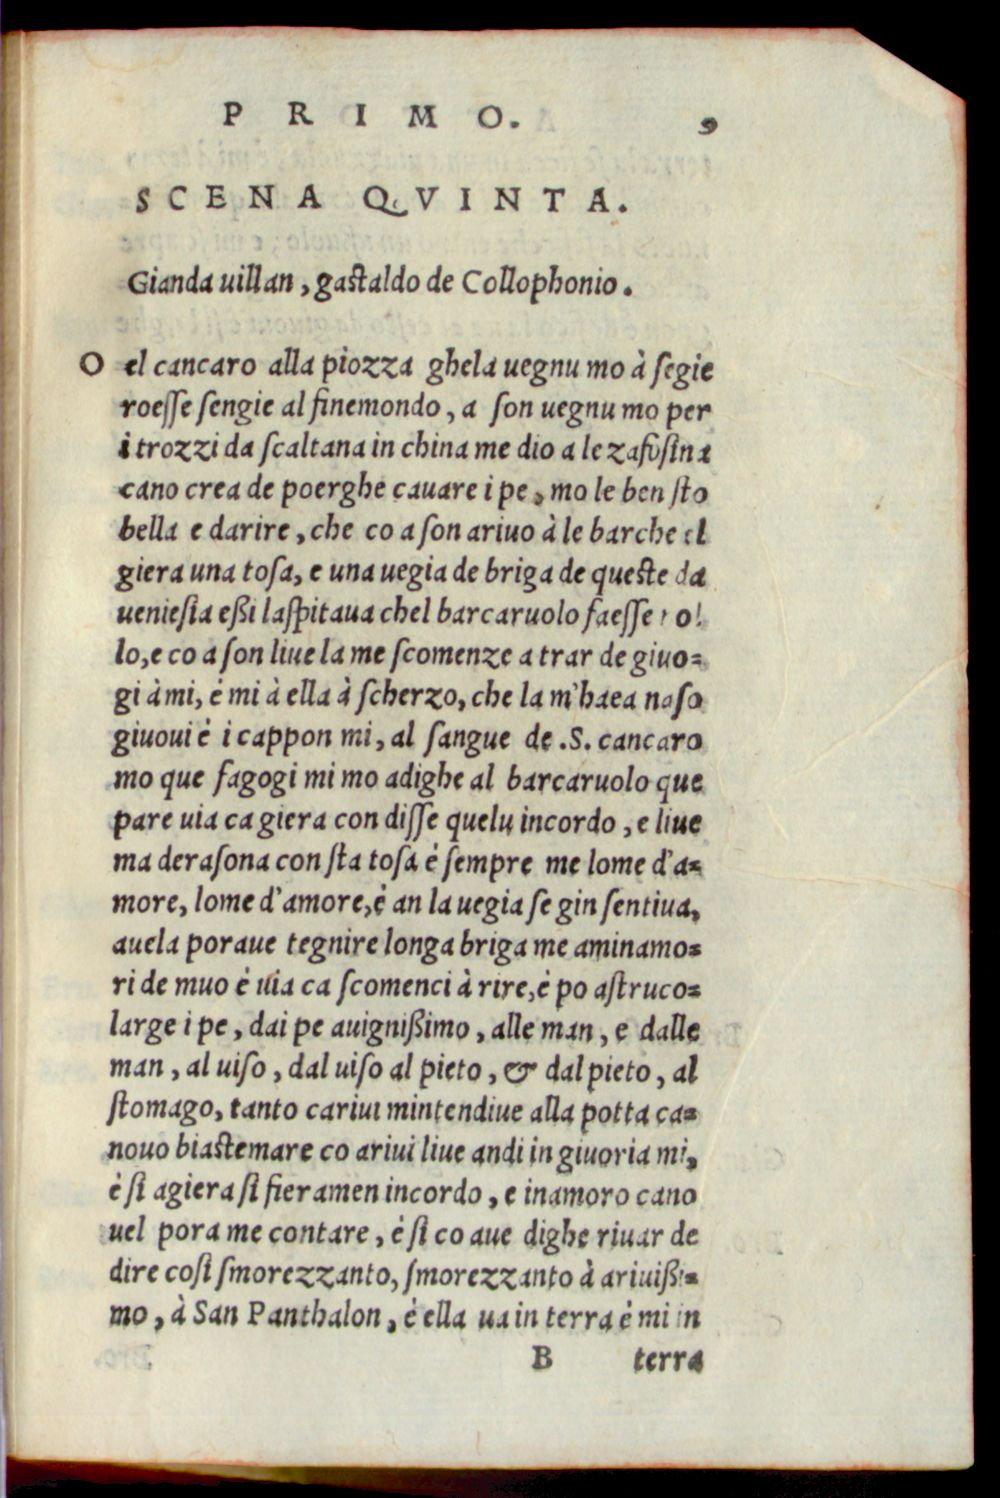 PRIMO. 9
SCENA QVINTA.
Gianda uillan, gastaldo de Collophonio.
O el cancaro alla piozza ghela uegnu mo à segie
roesse sengie al finemondo, a son uegnu mo per
i trozzi da scaltana in china me dio a le zafusina
cano crea de poerghe cauare i pe, mo le ben sto
bella e darire, che co a son ariuo à le barche el
giera una tosa, e una uegia de briga de queste da
ueniesia eßi laspitaua chel barcaruolo faesse
lo, e co a son liue la me scomenze a trar de giuo=
gi à mi, é mi à ella à scherzo, che la m'haea naso
giuoui é i cappon mi, al sangue de .S. cancaro
mo que fagogi mi mo adighe al barcaruolo que
pare uia ca giera con disse quelu incordo, e liue
ma derasona con sta tosa é sempre me lome d'a=
more, lome d'amore, é an la uegia se gin sentiua,
auela poraue tegnire longa briga me aminamo=
ri de muo é uia ca scomenci à rire, é po astruco=
large i pe, dai pe auignißimo, alle man, e dalle
man, al uiso, dal uiso al pieto, & dal pieto, al
stomago, tanto cariui mintendiue alla potta ca=
nouo biastemare co ariui liue andi in giuoria mi,
é si agiera si fieramen incordo, e inamoro cano
uel pora me contare, é si co aue dighe riuar de
dire cosi smorezzanto, smorezzanto à ariuißi=
mo, à San Panthalon, é ella ua in terra é mi in
B terra